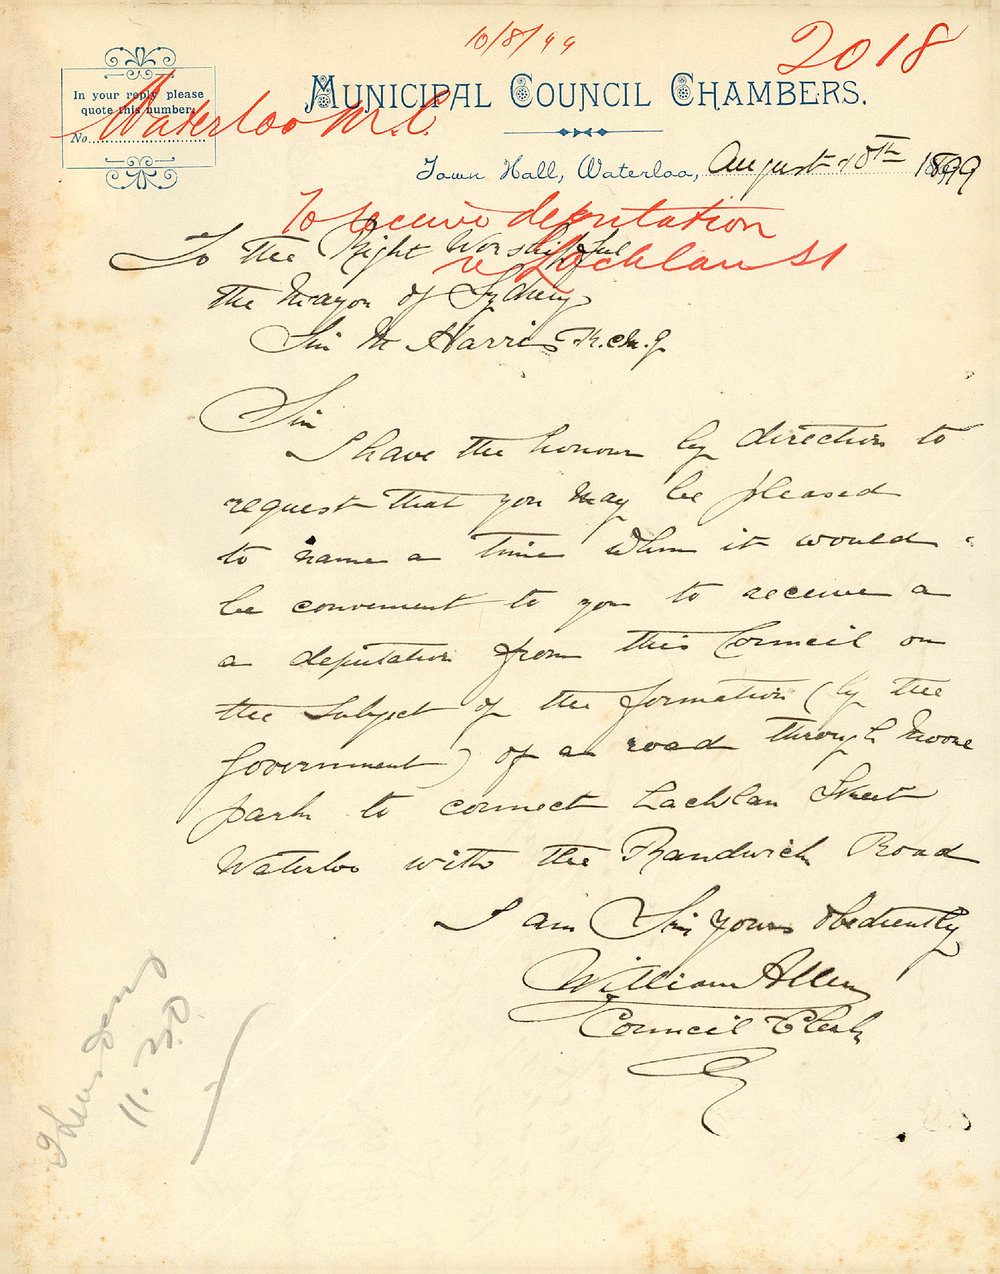 10/8/99
2018
In your reply please
quote this number:
No.
Waterloo M.C.
MUNICIPAL COUNCIL CHAMBERS.
Town Hall, Waterloo, August 10th 1899
To receive deputation
re Lachlan St
To the Right Worshipful
the Mayor of Sydney
Sir M Harris K.C.M.G
Sir
I have the honour by direction to
request that you may be pleased
to name a time when it would
be convenient to you to receive a
a deputation from this Council on
the subject of the formation (by the
Government) of a road through Moore
park to connect Lachlan Street
Waterloo with the Randwick Road
I am Sir yours obediently
William Allen
Council Clerk
Thursday
11.30